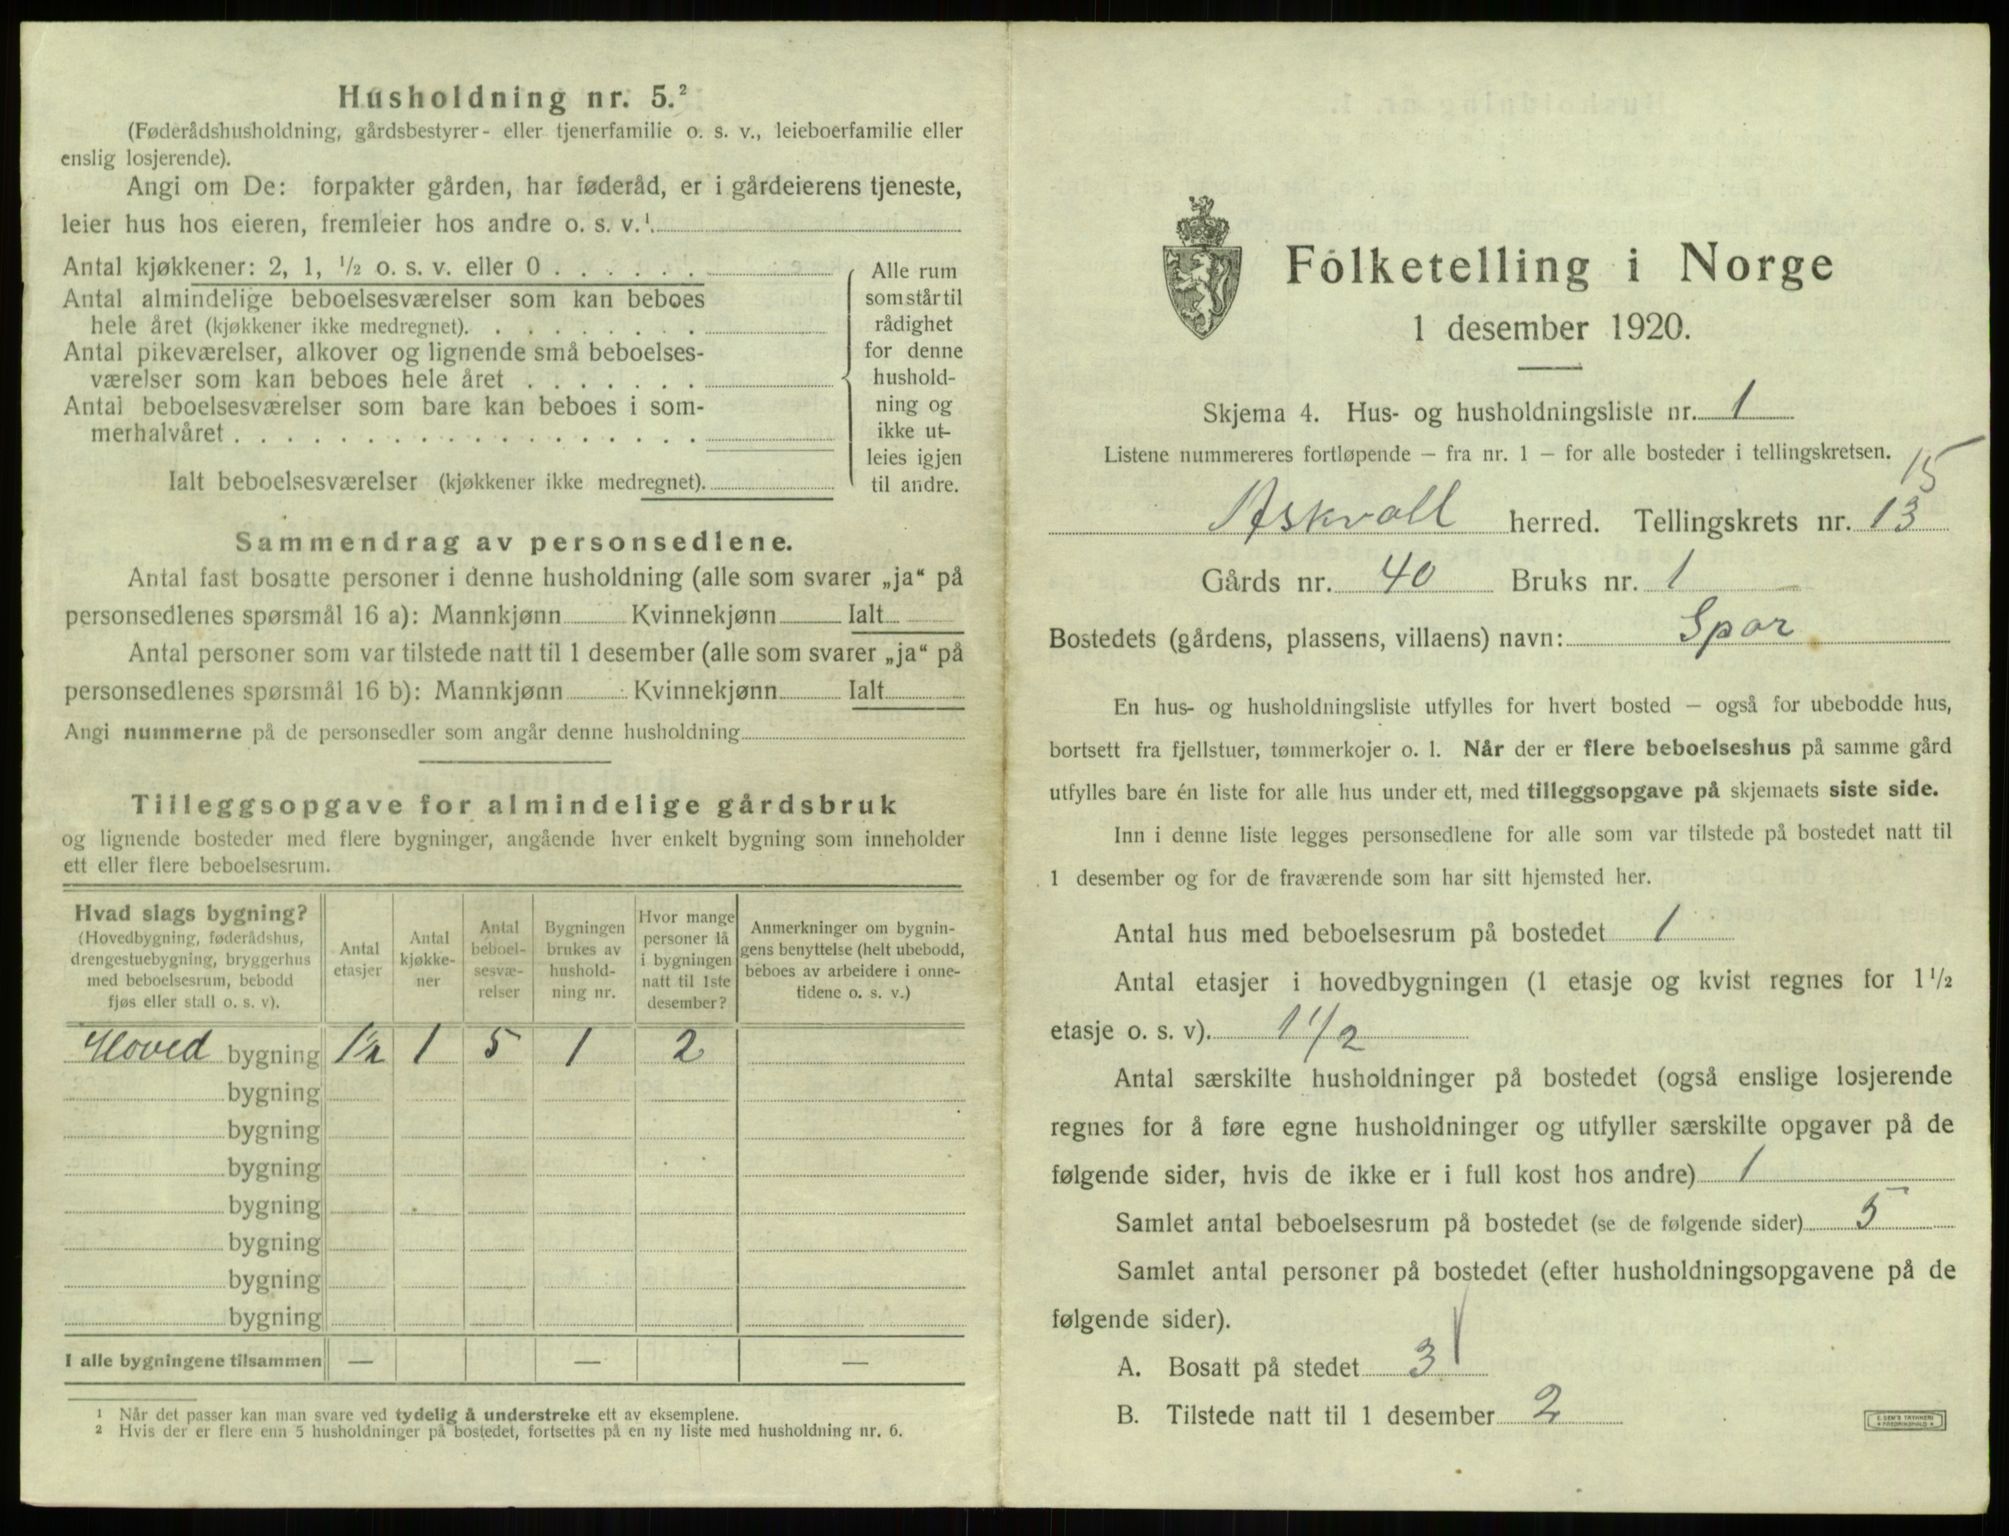 Husholdning nr. 5.²
(Føderådshusholdning, gårdsbestyrer- eller tjenerfamilie o. s. v., leieboerfamilie eller
enslig losjerende).
Angi om De: forpakter gården, har føderåd, er i gårdeierens tjeneste,
leier hus hos eieren, fremleier hos andre o. s. v.¹.
Antal kjøkkener: 2, 1, ½ o. s. v. eller 0 . . . . . .
Antal almindelige beboelsesværelser som kan beboes
hele året (kjøkkener ikke medregnet). . . . . . . . .
Antal pikeværelser, alkover og lignende små beboelses-
værelser som kan beboes hele året . . . . . . .
Antal beboelsesværelser som bare kan beboes i som-
merhalvåret . . . . . . . . . . . . . . . . . .
Ialt beboelsesværelser (kjøkkener ikke medregnet).
Alle rum
som står til
rådighet
for denne
hushold-
ning og
ikke ut-
leies igjen
til andre.
Sammendrag av personsedlene.
Antal fast bosatte personer i denne husholdning (alle som svarer „ja“ på
personsedlenes spørsmål 16 a): Mannkjønn Kvinnekjønn Ialt
Antal personer som var tilstede natt til 1 desember (alle som svarer „ja“ på
personsedlenes spørsmål 16 b): Mannkjønn Kvinnekjønn Ialt
Angi nummerne på de personsedler som angår denne husholdning
Tilleggsopgave for almindelige gårdsbruk
og lignende bosteder med flere bygninger, angående hver enkelt bygning som inneholder
ett eller flere beboelsesrum.
Hvad slags bygning?
(Hovedbygning, føderådshus,
drengestuebygning, bryggerhus
med beboelsesrum, bebodd
fjøs eller stall o. s. v).
Antal
etasjer
Antal
kjøkke-
ner
Antal
beboel-
sesvæ-
relser
Bygningen
brukes av
hushold-
ning nr.
Hvor mange
personer lå
i bygningen
natt til 1ste
desember?
Anmerkninger om bygnin-
gens benyttelse (helt ubebodd,
beboes av arbeidere i onne-
tidene o. s. v.)
Hoved bygning 1½ 1 5 1 2
bygning
bygning
bygning
bygning
bygning
bygning
bygning
I alle bygningene tilsammen — — —
¹ Når det passer kan man svare ved tydelig å understreke ett av eksemplene.
² Hvis der er flere enn 5 husholdninger på bostedet, fortsettes på en ny liste med husholdning nr. 6.
Folketelling i Norge
1 desember 1920.
Skjema 4. Hus- og husholdningsliste nr. 1
Listene nummereres fortløpende – fra nr. 1 – for alle bosteder i tellingskretsen.
15
Askvoll herred. Tellingskrets nr. 13
Gårds nr. 40 Bruks nr. 1
Bostedets (gårdens, plassens, villaens) navn: Spor
En hus- og husholdningsliste utfylles for hvert bosted – også for ubebodde hus,
bortsett fra fjellstuer, tømmerkojer o. l. Når der er flere beboelseshus på samme gård
utfylles bare én liste for alle hus under ett, med tilleggsopgave på skjemaets siste side.
Inn i denne liste legges personsedlene for alle som var tilstede på bostedet natt til
1 desember og for de fraværende som har sitt hjemsted her.
Antal hus med beboelsesrum på bostedet 1
Antal etasjer i hovedbygningen (1 etasje og kvist regnes for 1½
etasje o. s. v). 1 1/2
Antal særskilte husholdninger på bostedet (også enslige losjerende
regnes for å føre egne husholdninger og utfyller særskilte opgaver på de
følgende sider, hvis de ikke er i full kost hos andre) 1
Samlet antal beboelsesrum på bostedet (se de følgende sider) 5
Samlet antal personer på bostedet (efter husholdningsopgavene på de
følgende sider).
A. Bosatt på stedet 3
B. Tilstede natt til 1 desember 2
E. SEM'S TRYKKERI
• FREDRIKSHALD •